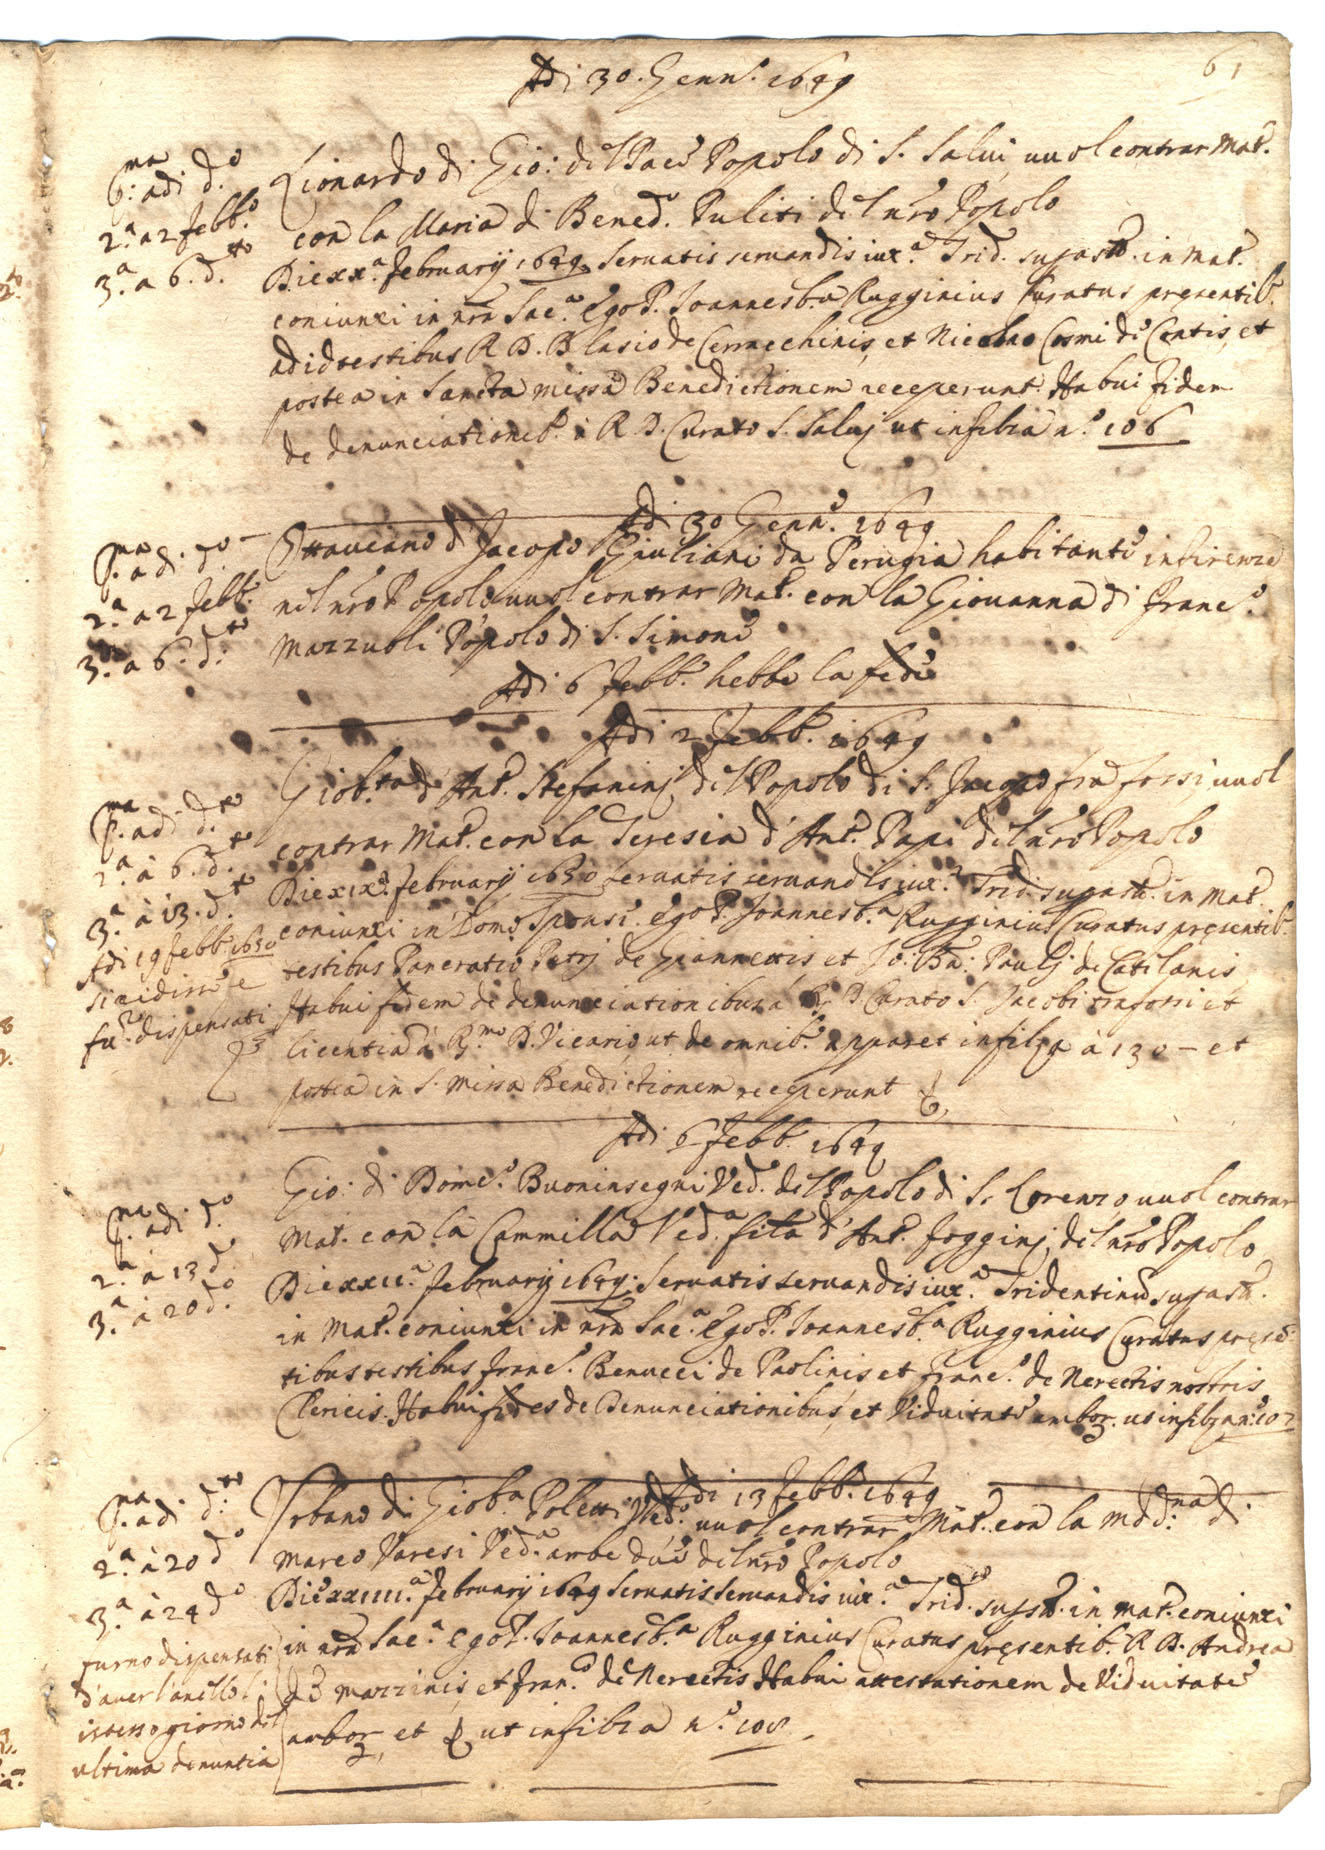 61
Adi 30. Genn.o 1649
p.ma adi d.o
2.a a 2 febb.o
3.a a 6. d.tto
Lionardo di Gio: di Popolo di S. Salui uuol contrar Mat.
con la Maria di Bened.o Puliti del nro Popolo
Die xx.a februarij 1649 seruatis seruandis iux.a Trid. in Mat.
coniunxi in nra Sac.a Ego P. Joannes b.a Rugginius Curatus presentib.
ad id testibus R. D. Blasio de Cernechinis, et Nicolao Cosmi de Centis, et
postea in Sancta missa Benedictionem receperunt Habui fidem
de denunciationib. à R. D. Curato S. Saluij ut in filza n.o 106
Adi 30 Genn.o 1649
p.ma adi d.o
2.a a 2 febb.
3.a a 6. d.tto
Ottauiano d' Jacopo Giuliani da Perugia habitante in firenze
nel nro Popolo uuol contrar Mat. con la Giouanna di franc.o
Mazzuoli Popolo di S. Simone
Adi 6 febb. hebbe la fede
Adi 2 febb. 1649
p.ma adi d.to
2.a à 6. d.to
3.a à 13. d.to
Adi 19 febb. 1650
si
fu.o dispensati
Giob.ta d' Ant.o Stefaninj del Popolo di S. Jacopo fra fossi, uuol
contrar Mat. con la Teresia d' Ant.o Papi del nro Popolo
Die xix.a februarij 1650 seruatis seruandis iux.a Trid. in Mat.
coniunxi in Domo Sponsi. Ego P. Joannes b.a Rugginius Curatus presentib.
testibus Pancratio Petrj de Giannettis et Jo: Ba: Paulj de Catilanis
Habui fidem de denunciationibus à R. D Curato S. Jacobi et
licentia à R.mo D. Vicario, ut de omnib. apparet in filza à 130 - et
postea in S. Missa Benedictionem receperunt
Adi 6 febb. 1649
p.ma adi d.o
2.a à 13 d.o
3.a à 20 d.o
Gio: di Dome.o Buoninsegni Ved. del Popolo di S. Lorenzo uuol contrar
Mat. con la Cammilla Ved.a fil.a d' Ant.o fogginj, del nro Popolo
Die xxii.a februarij 1649. Seruatis seruandis iux.a Tridentinu
in Mat. coniunxi in nra Sac.a Ego P. Joannes b.a Rugginius Curatus prese
tibus testibus franc.o Benucci de Paolinis et franc.o de Nerectis nostris
Clericis. Habui fides de Denunciationibus, et Viduitate amboz. ut in filza n.o 107
Adi 13 febb. 1649
p.ma adi d.tto
2.a à 20 d.o
3.a à 24 d.o
furno dispensati
d'auer l'anello l
istesso giorno del
ultima denuntia
Vrbano di Giob.a Poletti Ved.o uuol contrar Mat. con la Mad.na di
Marco Varesi Ved.a ambe due del nro Popolo
Die xxiiii.a februarij 1649 seruatis seruandis iux.a Trid. in Mat. coniunxi
in nra Sac.a Ego P. Joannes b.a Rugginius Curatus presentib. R. D. Andrea
de Mazzinis, et fran.co de Nerectis Habui attestationem de Viduitate
amboz, et ut in filza n.o 108